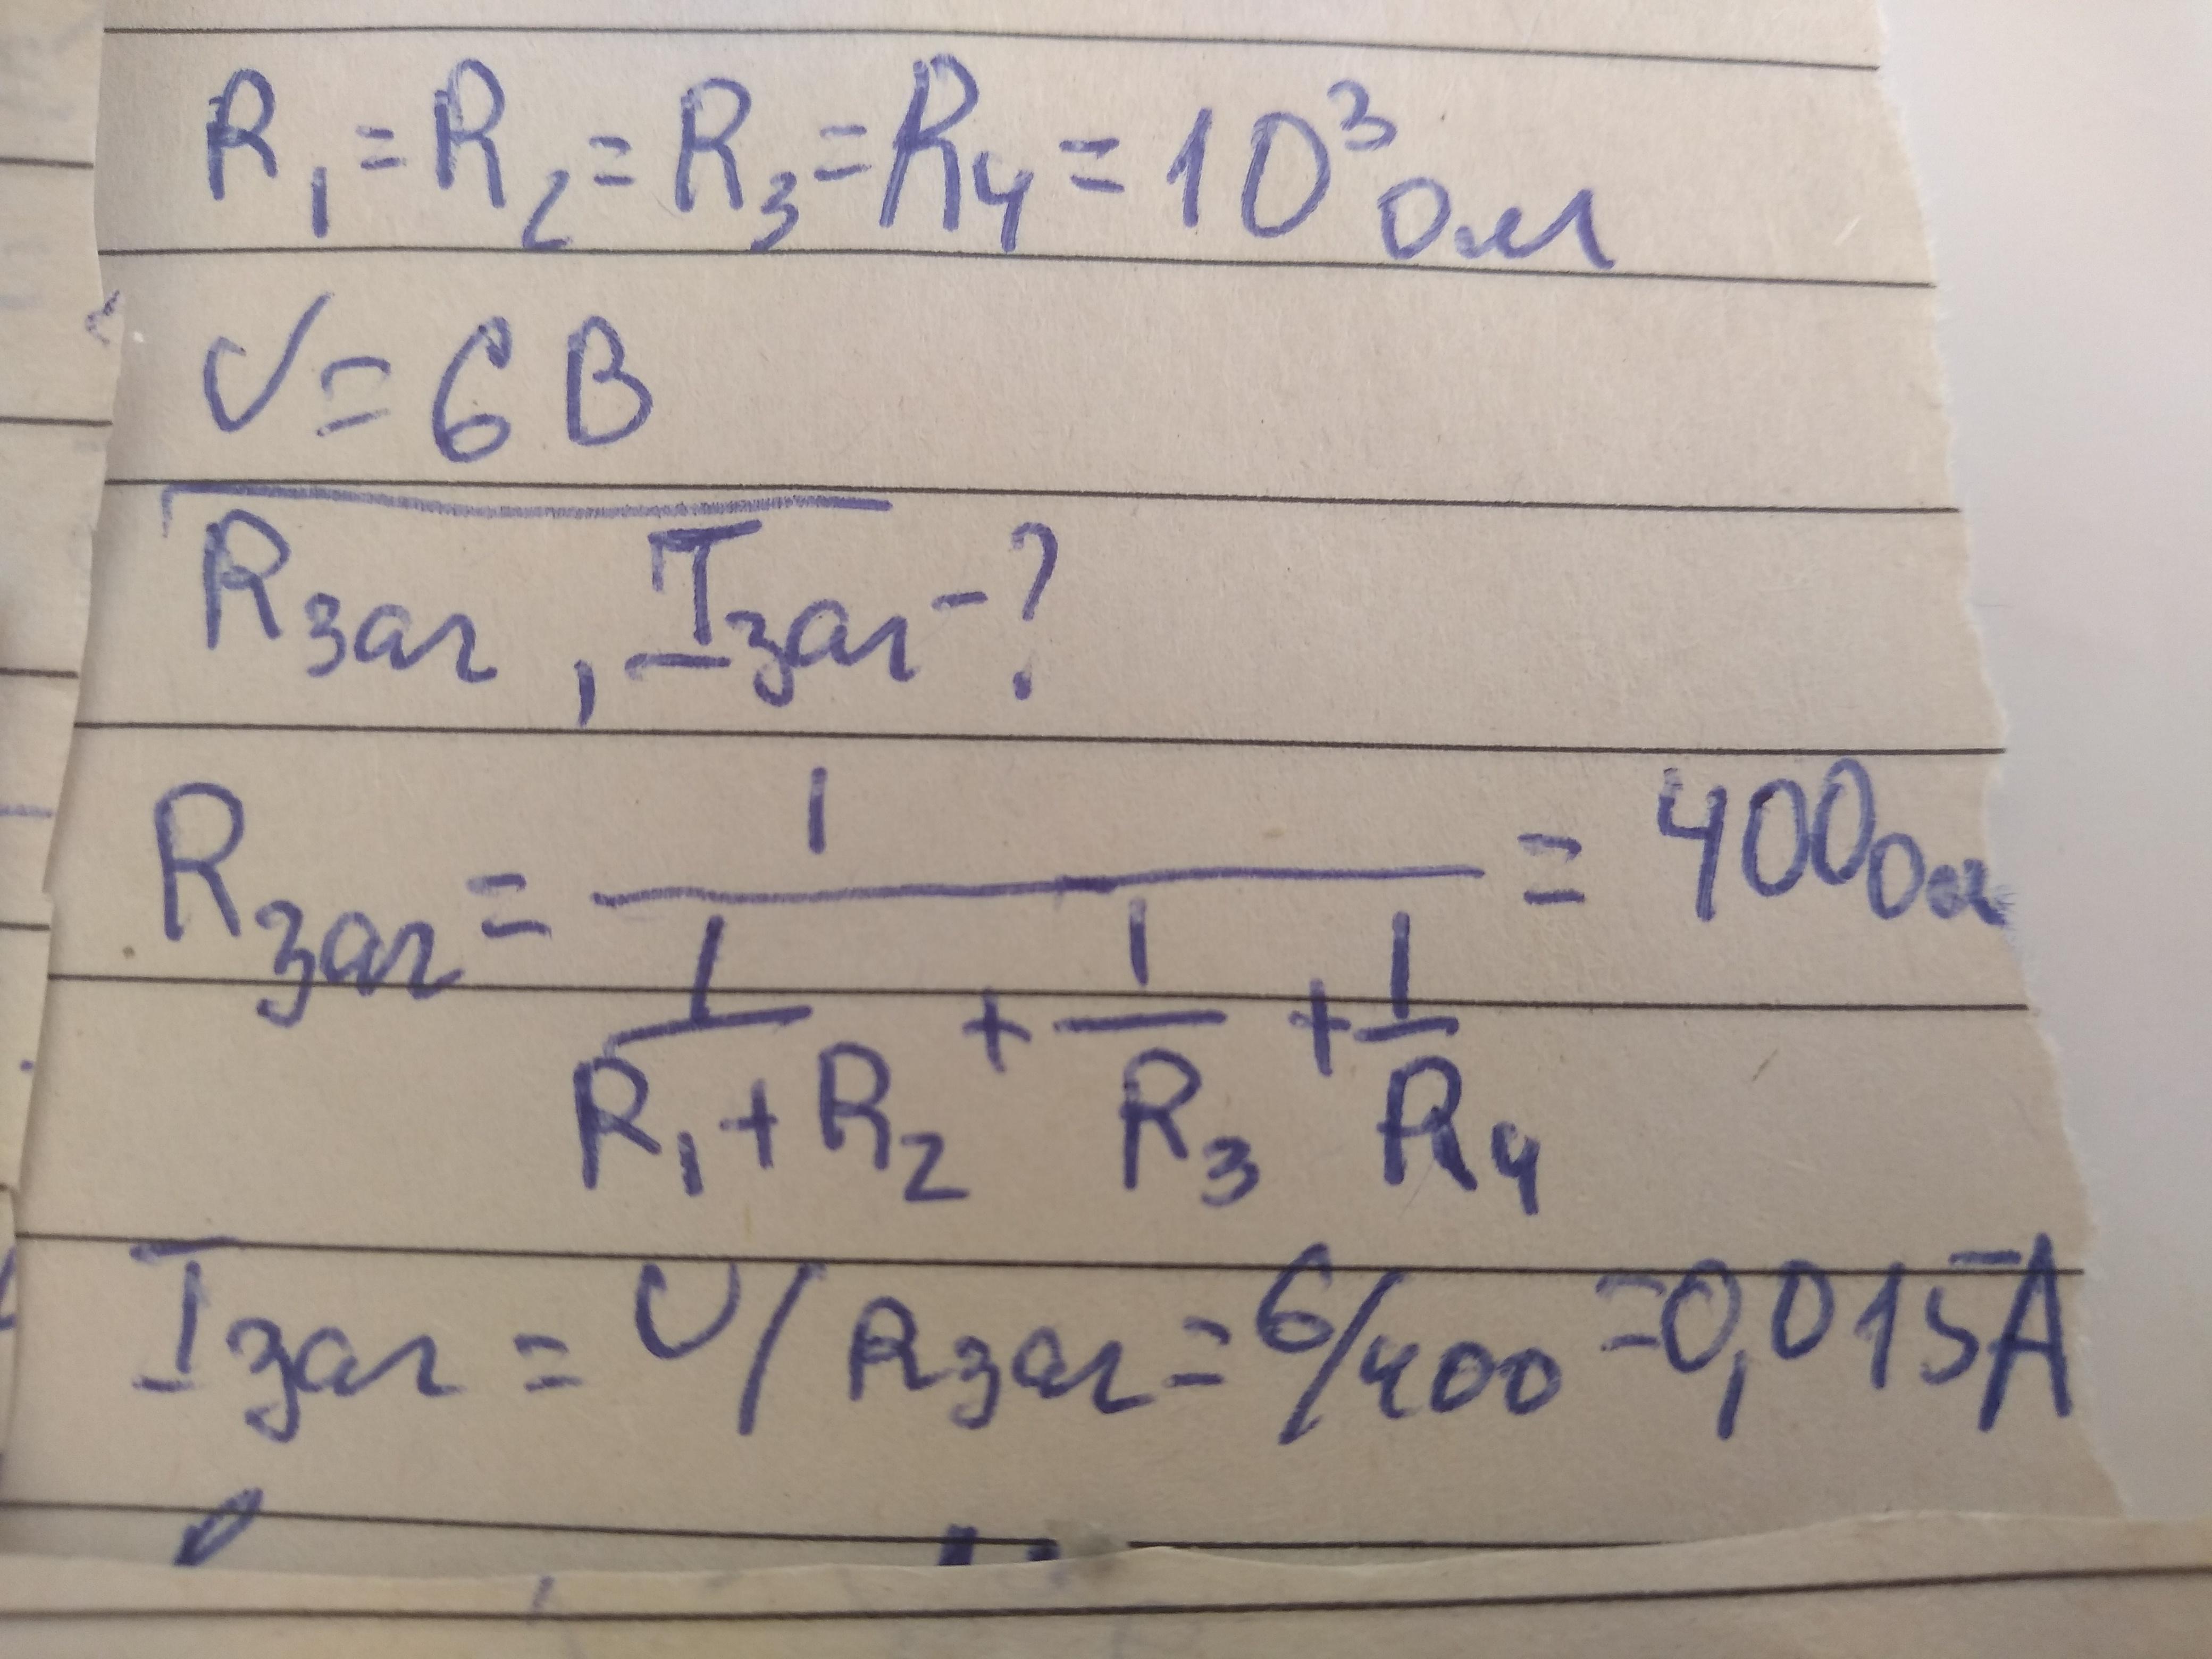 R₁=R₂=R₃=R₄=10³Ом
U=6В
Rзаг, Iзаг-?
Rзаг = 1/(1/(R₁+R₂) + 1/R₃ + 1/R₄) = 400Ом
Iзаг = U/Rзаг = 6/400 = 0,015A